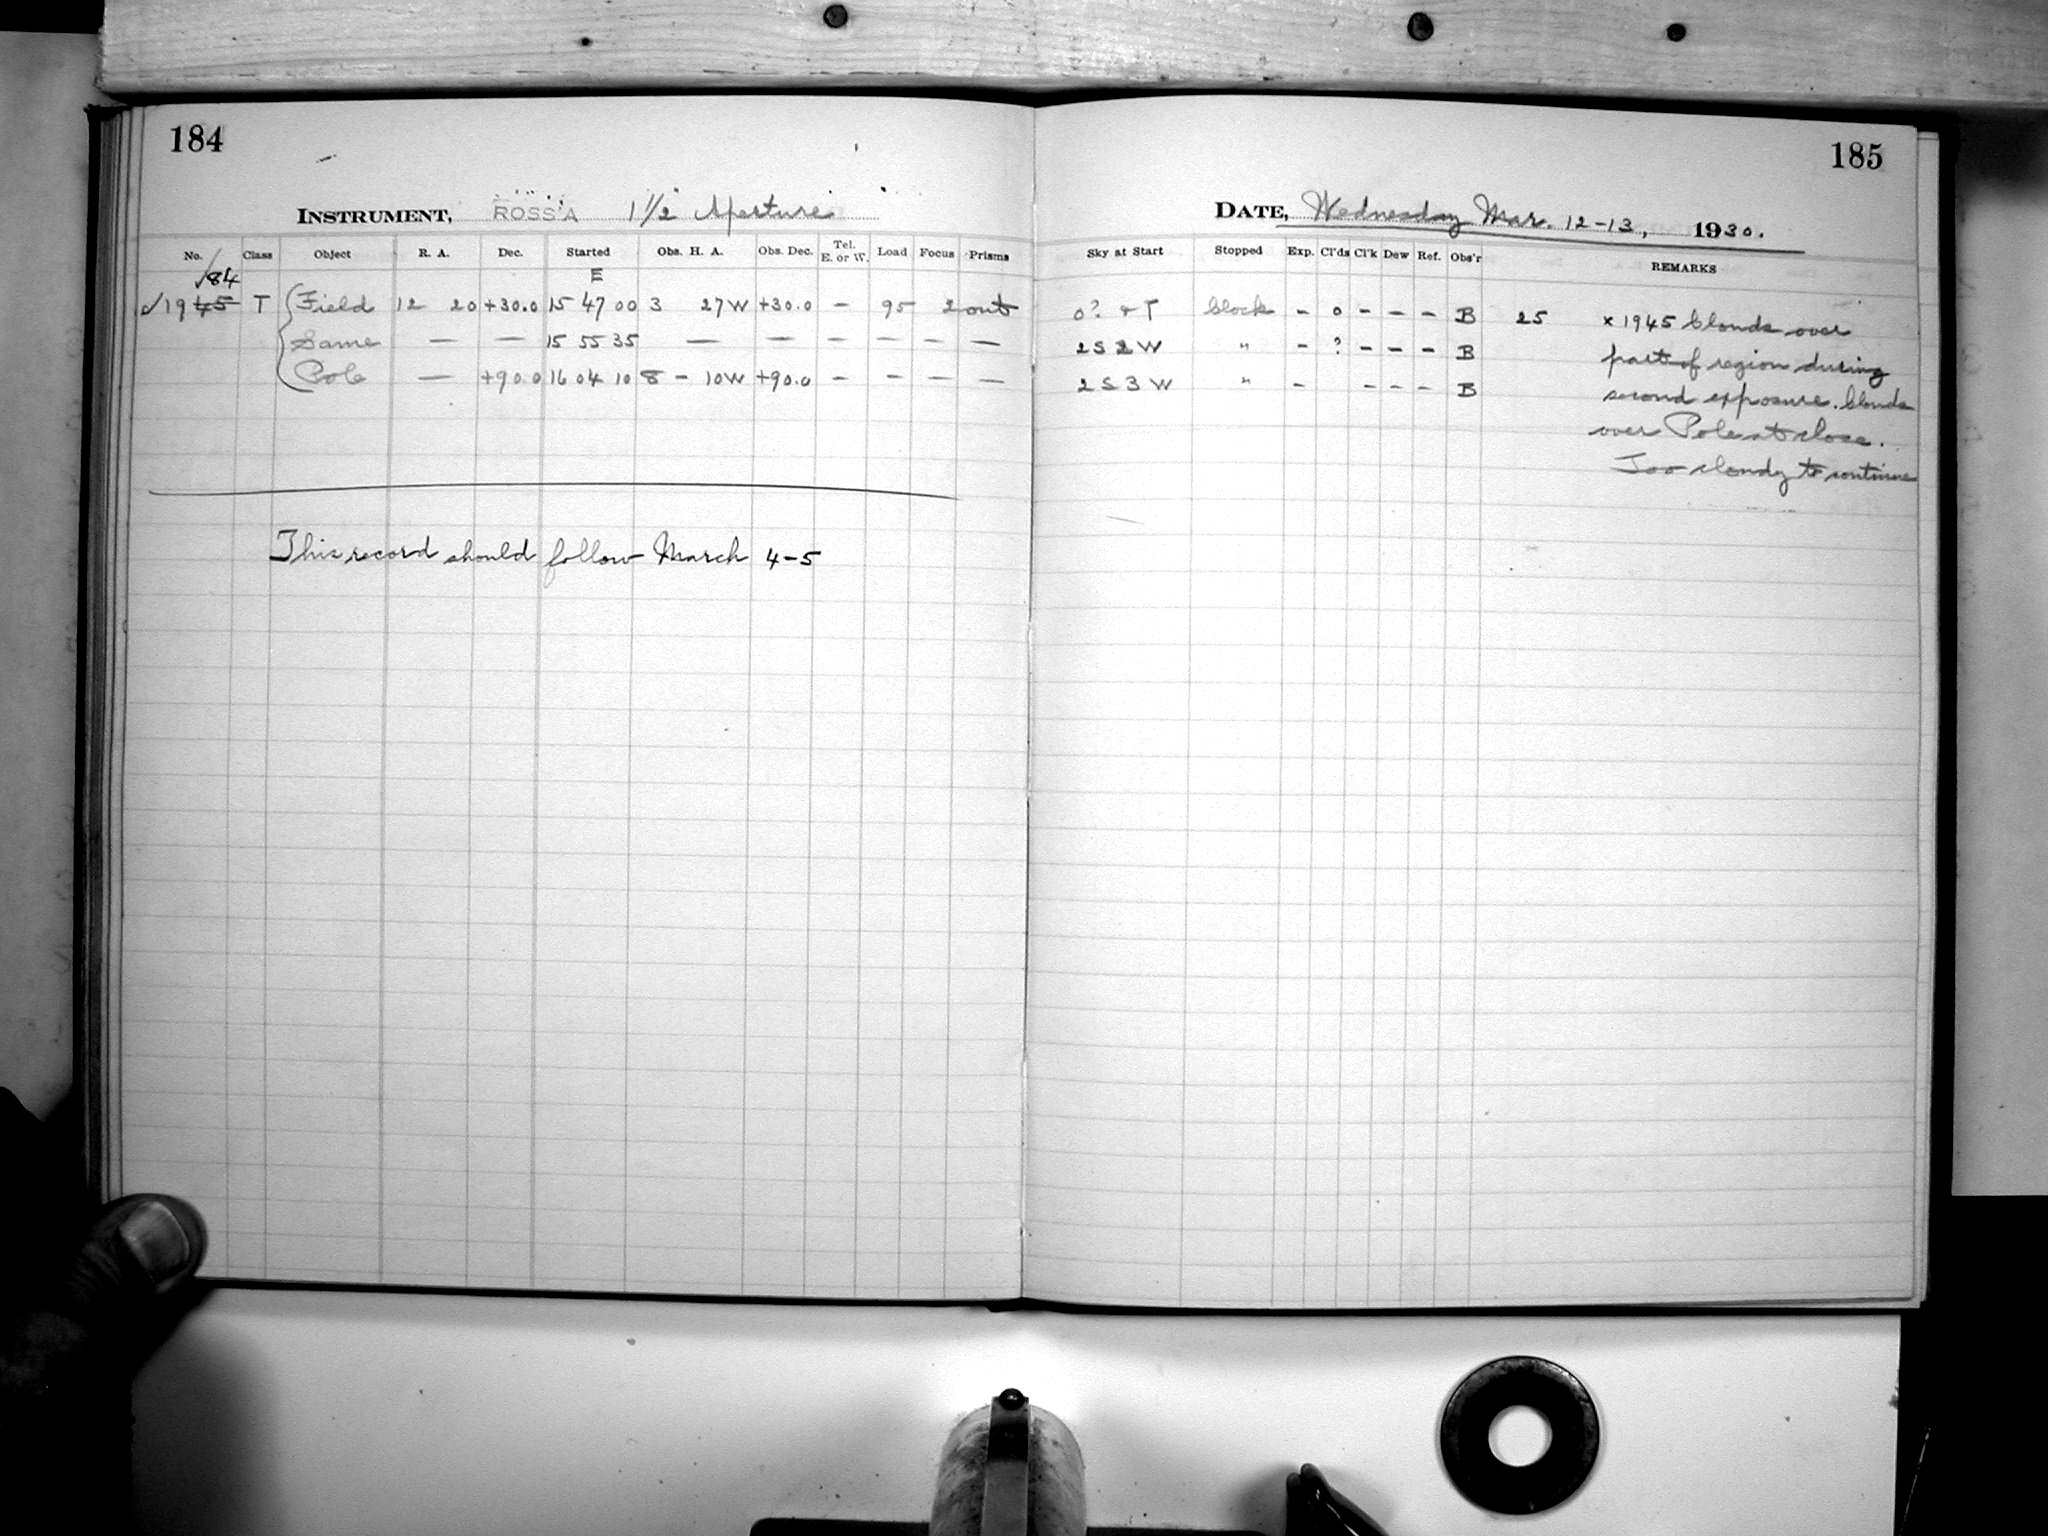 184
INSTRUMENT, ROSS A 1 1/2" Aperture
No. Class Object R. A. Dec. Started Obs. H. A. Obs. Dec. Tel. E. or W. Load Focus Prisms
84 E
✓19 45 T Field 12 20 +30.0 15 47 00 3 27 W +30.0 — 95 2 out
Same — — 15 55 35 — — — — — —
Pole — +90.0 16 04 10 8 - 10 W +90.0 — — — —
This record should follow March 4-5
185
DATE, Wednesday Mar. 12-13, 1930.
Sky at Start Stopped Exp. Cl'ds Cl'k Dew Ref. Obs'r REMARKS
0? + T Clock - 0 - - - B 25 x 1945 Clouds over
2 S 2 W " - ? - - - B part of region during
2 S 3 W " - - - - B second exposure. Clouds
over Pole at close.
Too cloudy to continue